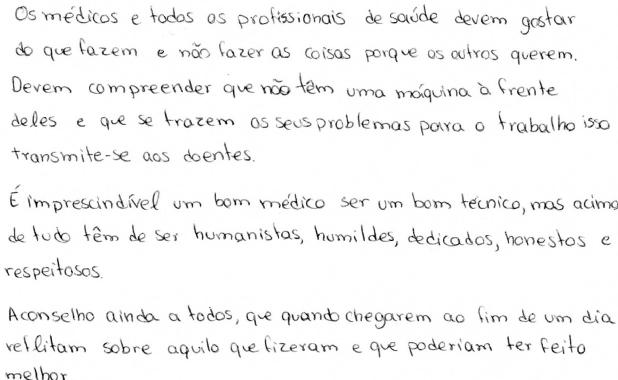 Os médicos e todos os profissionais de saúde devem gostar
do que fazem e não fazer as coisas porque os outros querem.
Devem compreender que não têm uma máquina à frente
deles e que se trazem os seus problemas para o trabalho isso
transmite-se aos doentes.
É imprescindível um bom médico ser um bom técnico, mas acima
de tudo têm de ser humanistas, humildes, dedicados, honestos e
respeitosos.
Aconselho ainda a todos, que quando chegarem ao fim de um dia
reflitam sobre aquilo que fizeram e que poderiam ter feito
melhor